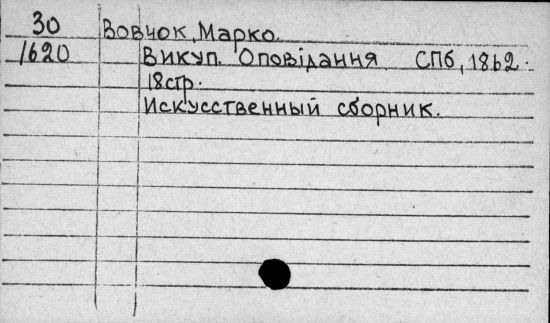 30 Вовчок, Марко.
1620 Викуп. Оповідання СПб, 1862.
18стр.
Искусственный сборник.